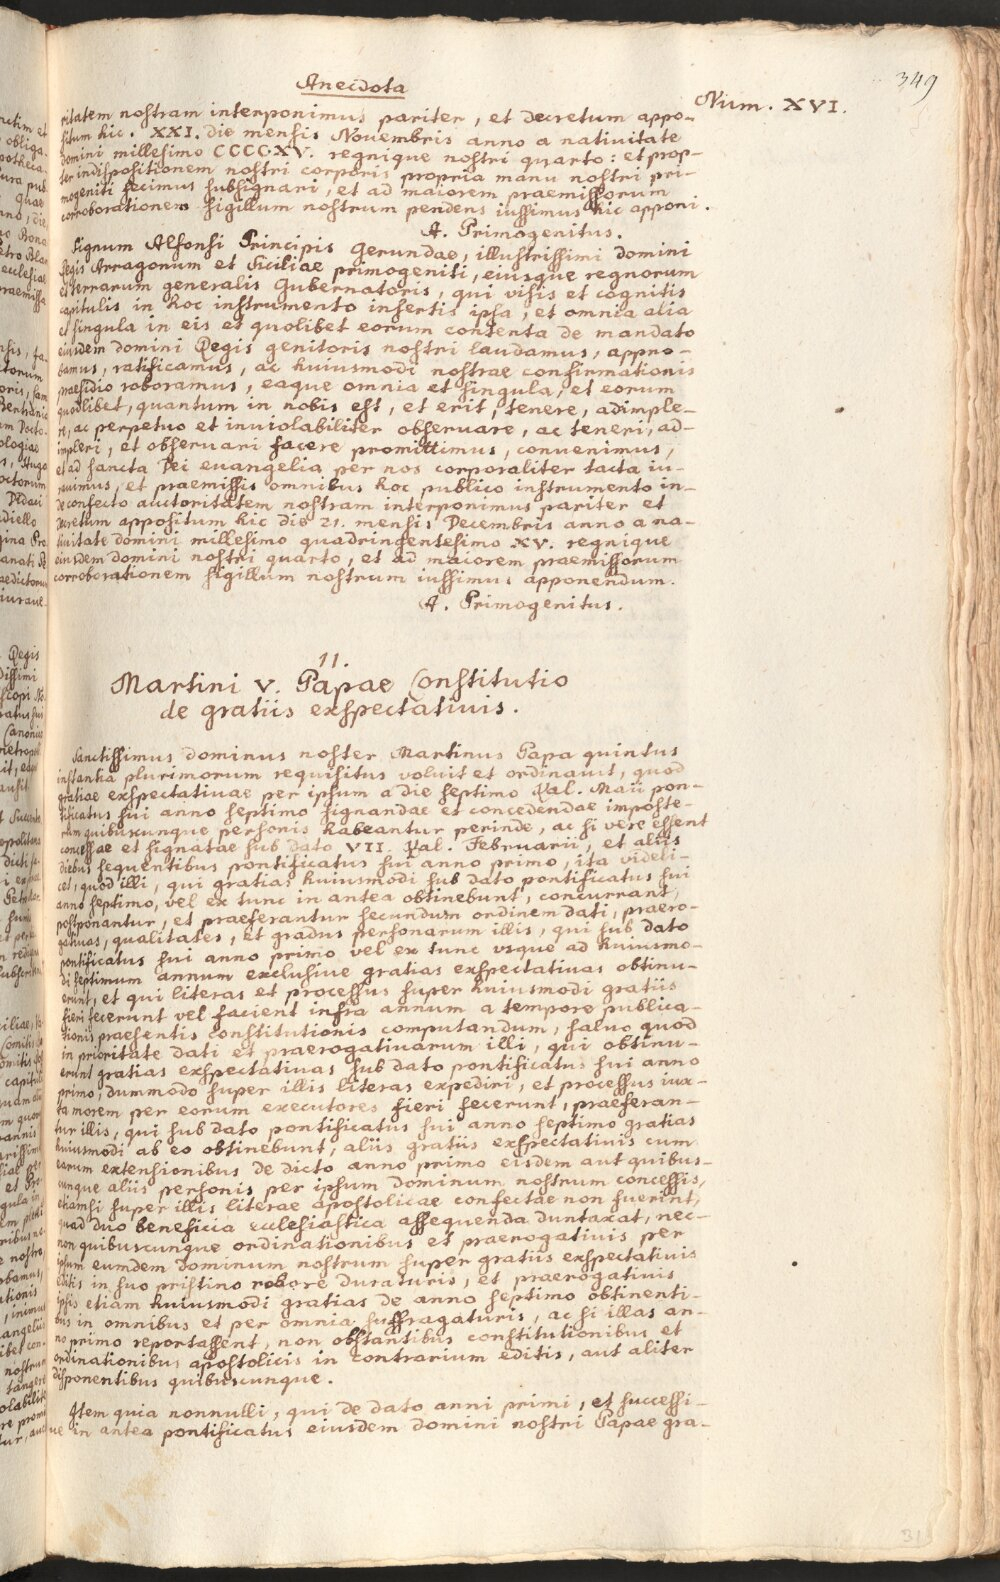 349
Anecdota
Num. XVI.
ritatem nostram interponimus pariter, et decretum appo-
situm hic. XXI. die mensis Novembris anno a nativitate
Domini millesimo CCCCXV. regnique nostri quarto: et prop-
ter indispositionem nostri corporis propria manu nostri pri-
mogeniti fecimus subsignari, et ad maiorem praemissorum
corroborationem sigillum nostrum pendens iussimus hic apponi.
A. Primogenitus.
Signum Alfonsi Principis Gerundae, illustrissimi domini
Regis Arragonum et Siciliae primogeniti, eiusque regnorum
et terrarum generalis Gubernatoris, qui visis et cognitis
capitulis in hoc instrumento insertis ipsa, et omnia alia
et singula in eis et quolibet eorum contenta de mandato
eiusdem domini Regis genitoris nostri laudamus, appro-
bamus, ratificamus, ac huiusmodi nostrae confirmationis
praesidio roboramus, eaque omnia et singula, et eorum
quodlibet, quantum in nobis est, et erit, tenere, adimple-
re, ac perpetuo et inviolabiliter observare, ac teneri, ad-
impleri, et observari facere promittimus, convenimus,
et ad sancta Dei evangelia per nos corporaliter tacta iu-
ravimus, et praemissis omnibus hoc publico instrumento in-
de confecto auctoritatem nostram interponimus pariter et
decretum appositum hic die 21. mensis Decembris anno a na-
tivitate domini millesimo quadringentesimo XV. regnique
eiusdem domini nostri quarto, et ad maiorem praemissorum
corroborationem sigillum nostrum iussimus apponendum.
A. Primogenitus.
11.
Martini V. Papae Constitutio
de gratiis exspectativis.
Sanctissimus dominus noster Martinus Papa quintus
instantia plurimorum requisitus voluit et ordinavit, quod
gratiae exspectativae per ipsum a die septimo Kal. Maii pon-
tificatus sui anno septimo signandae et concedendae imposte-
rum quibuscunque personis habeantur perinde, ac si vere essent
concessae et signatae sub dato VII. Kal. Februarii, et aliis
diebus sequentibus pontificatus sui anno primo, ita videli-
cet, quod illi, qui gratias huiusmodi sub dato pontificatus sui
anno septimo, vel ex tunc in antea obtinebunt, concurrant,
postponantur, et praeferantur secundum ordinem dati, praero-
gativas, qualitates, et gradus personarum illis, qui sub dato
pontificatus sui anno primo vel ex tunc usque ad huiusmo-
di septimum annum exclusive gratias exspectativas obtinu-
erunt, et qui literas et processus super huiusmodi gratiis
fieri fecerunt vel facient infra annum a tempore publica-
tionis praesentis constitutionis computandum, salvo quod
in prioritate dati et praerogativarum illi, qui obtinu-
erunt gratias exspectativas sub dato pontificatus sui anno
primo, dummodo super illis literas expediri, et processus iux-
ta morem per eorum executores fieri fecerunt, praeferan-
tur illis, qui sub dato pontificatus sui anno septimo gratias
huiusmodi ab eo obtinebunt, aliis gratiis exspectativis cum
earum extensionibus de dicto anno primo eisdem aut quibus-
cunque aliis personis per ipsum dominum nostrum concessis,
etiamsi super illis literae apostolicae confectae non fuerint,
quad duo beneficia ecclesiastica assequenda duntaxat, nec-
non quibuscunque ordinationibus et praerogativis per
ipsum eumdem dominum nostrum super gratiis exspectativis
editis in suo pristino robore duraturis, et praerogativis
ipsis etiam huiusmodi gratias de anno septimo obtinenti-
bus in omnibus et per omnia suffragaturis, ac si illas an-
no primo reportassent, non obstantibus constitutionibus et
ordinationibus apostolicis in contrarium editis, aut aliter
disponentibus quibuscunque.
Item quia nonnulli, qui de dato anni primi, et successi-
ve in antea pontificatus eiusdem domini nostri Papae gra-